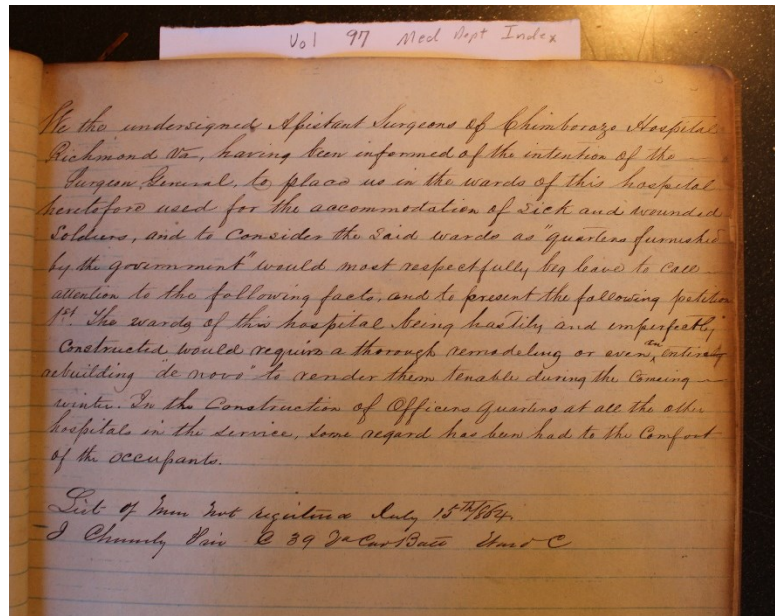 Vol 97 Med Dept Index
We the undersigned Assistant Surgeons of Chimborazo Hospital
Richmond Va, having been informed of the intention of the
Surgeon General, to place us in the wards of this hospital
heretofore used for the accommodation of Sick and wounded
Soldiers, and to Consider the Said wards as "quarters furnished
by the government" would most respectfully beg leave to Call
attention to the following facts, and to present the following petition
1st. The wards of this hospital being hastily and imperfectly
Constructed, would require a thorough remodeling or even an entire
rebuilding "de novo" to render them tenable during the Comeing
winter. In the Construction of Officers Quarters at all the other
hospitals in the service, some regard has been had to the Comfort
of the occupants.
List of Men not registered July 15th/864
J C 39 Va Cav Batt Ward C